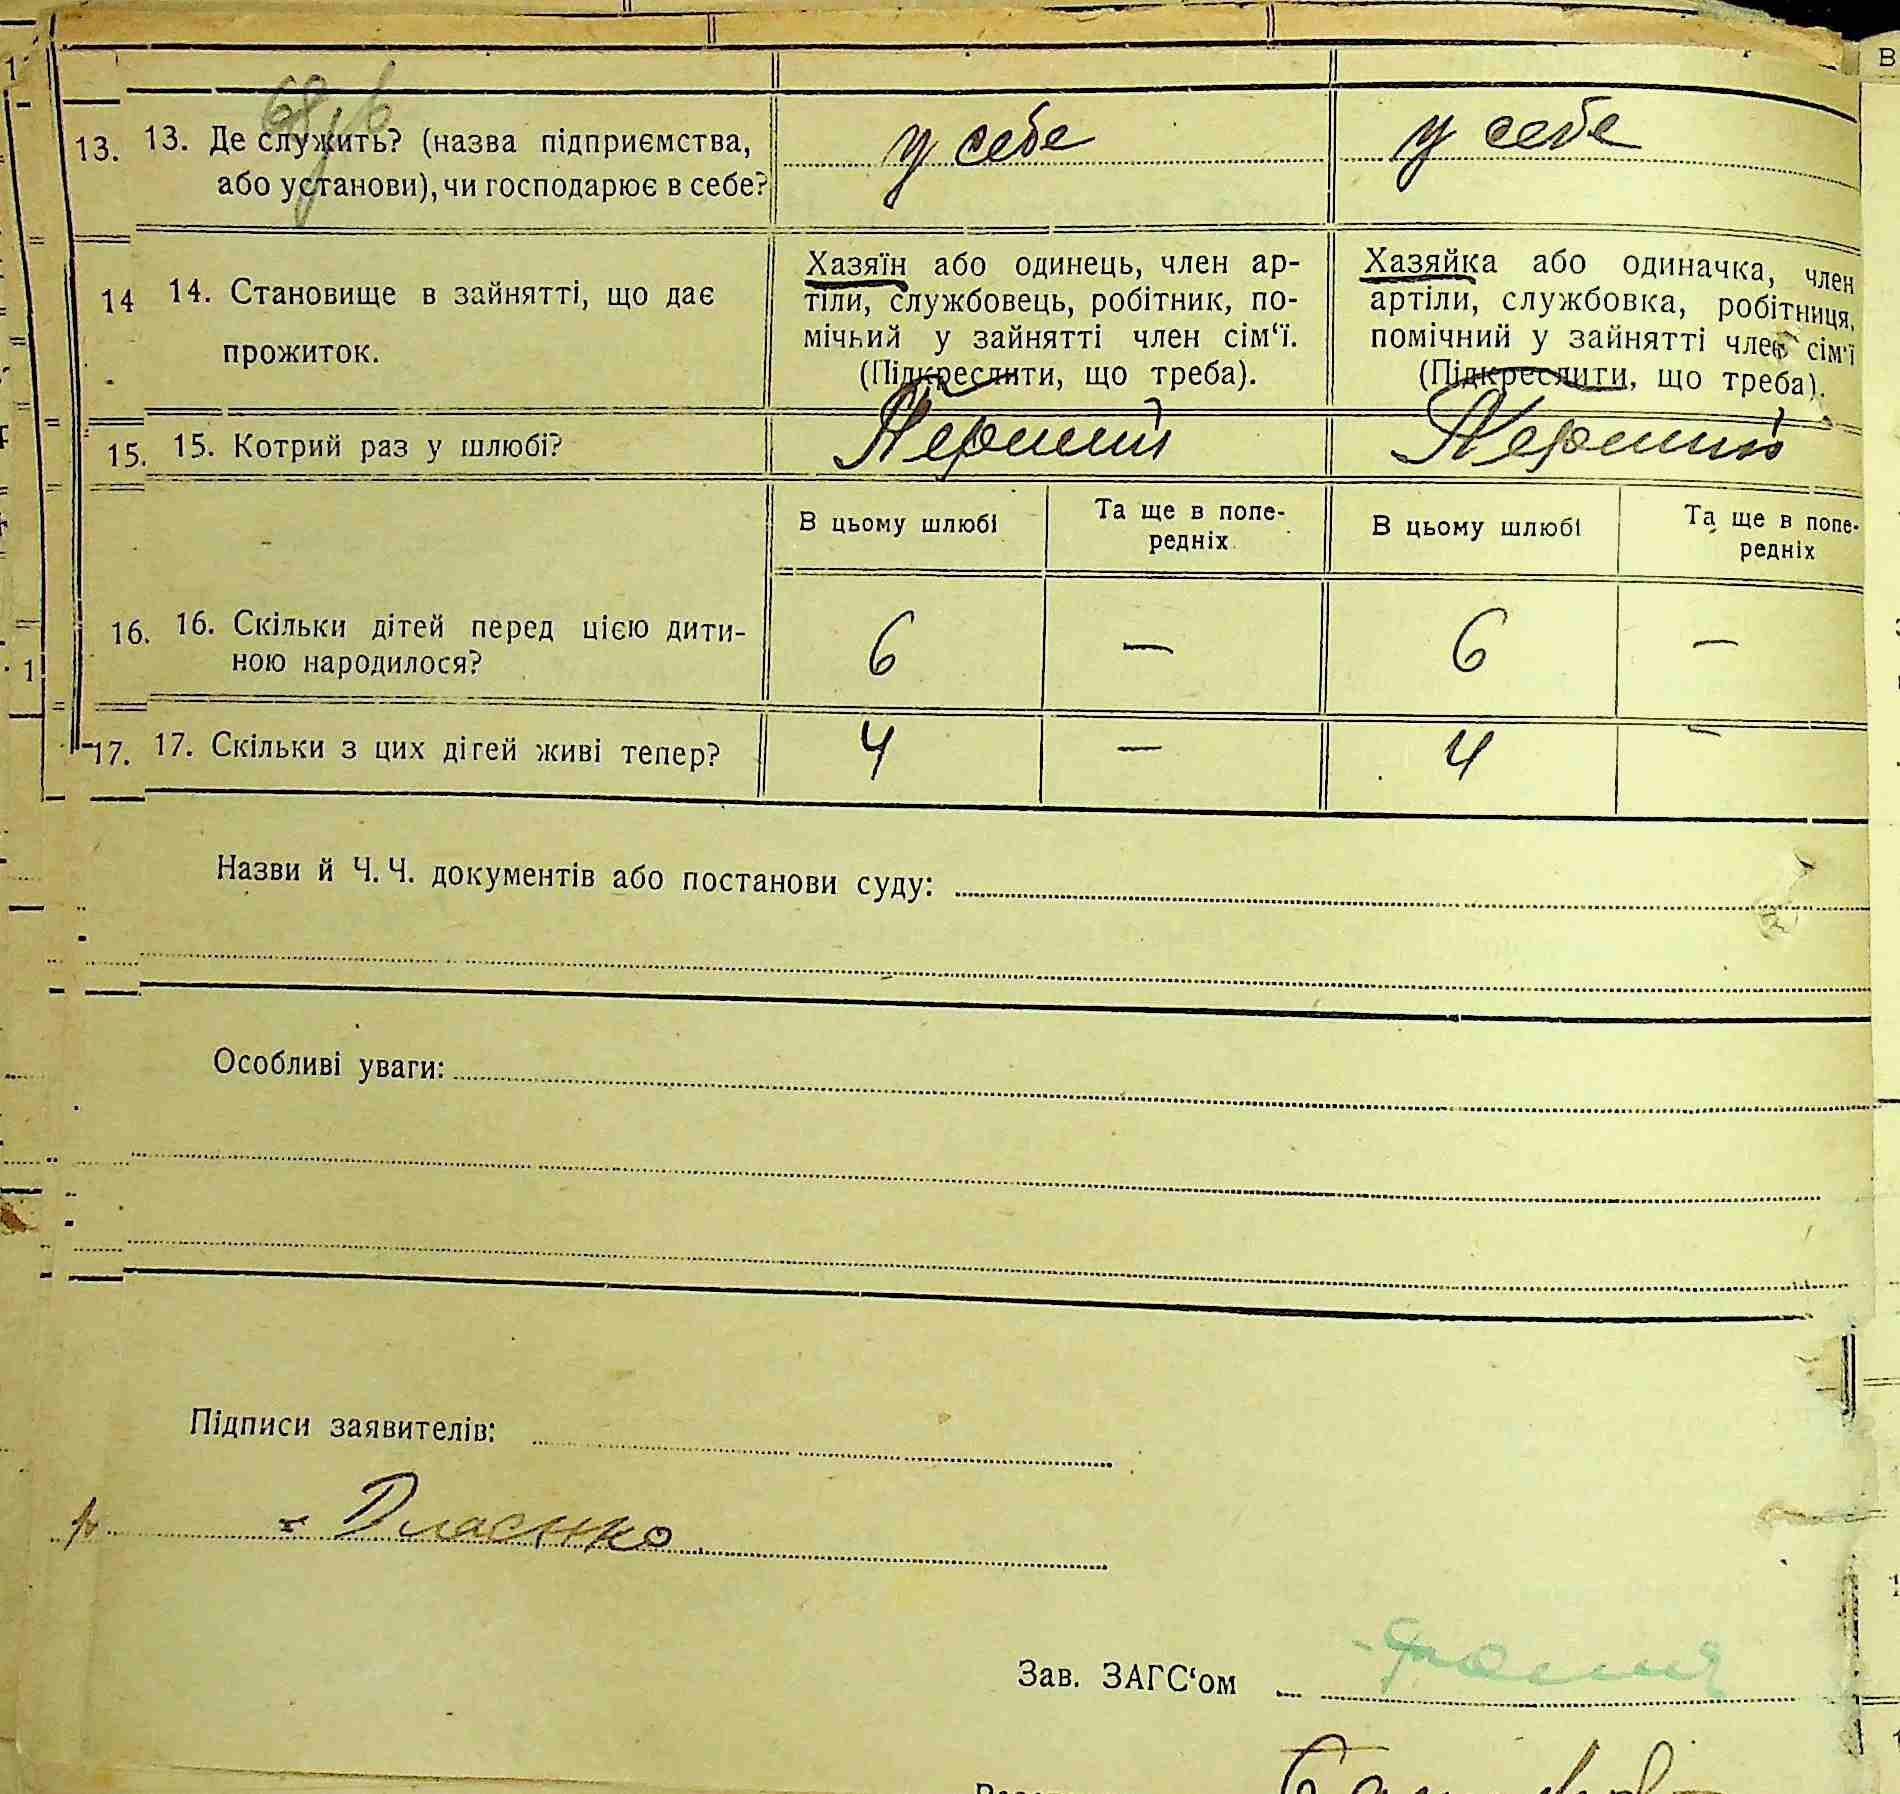 13. 13. Де служить? (назва підприємства, або установи), чи господарює в себе?
у себе
у себе
14 14. Становище в зайнятті, що дає прожиток.
Хазяїн або одинець, член ар-
тіли, службовець, робітник, по-
мічний у зайнятті член сім‘ї.
(Підкреслити, що треба).
Хазяйка або одиначка, член
артіли, службовка, робітниця,
помічний у зайнятті член сім‘ї
(Підкреслити, що треба).
15. 15. Котрий раз у шлюбі?
Перший
Перший
В цьому шлюбі
Та ще в попе-
редніх
В цьому шлюбі
Та ще в попе-
редніх
16. 16. Скільки дітей перед цією дити-
ною народилося?
6 — 6 —
17. 17. Скільки з цих дітей живі тепер?
4 — 4 —
Назви й Ч. Ч. документів або постанови суду:
Особливі уваги:
Підписи заявителів:
Зав. ЗАГС‘ом